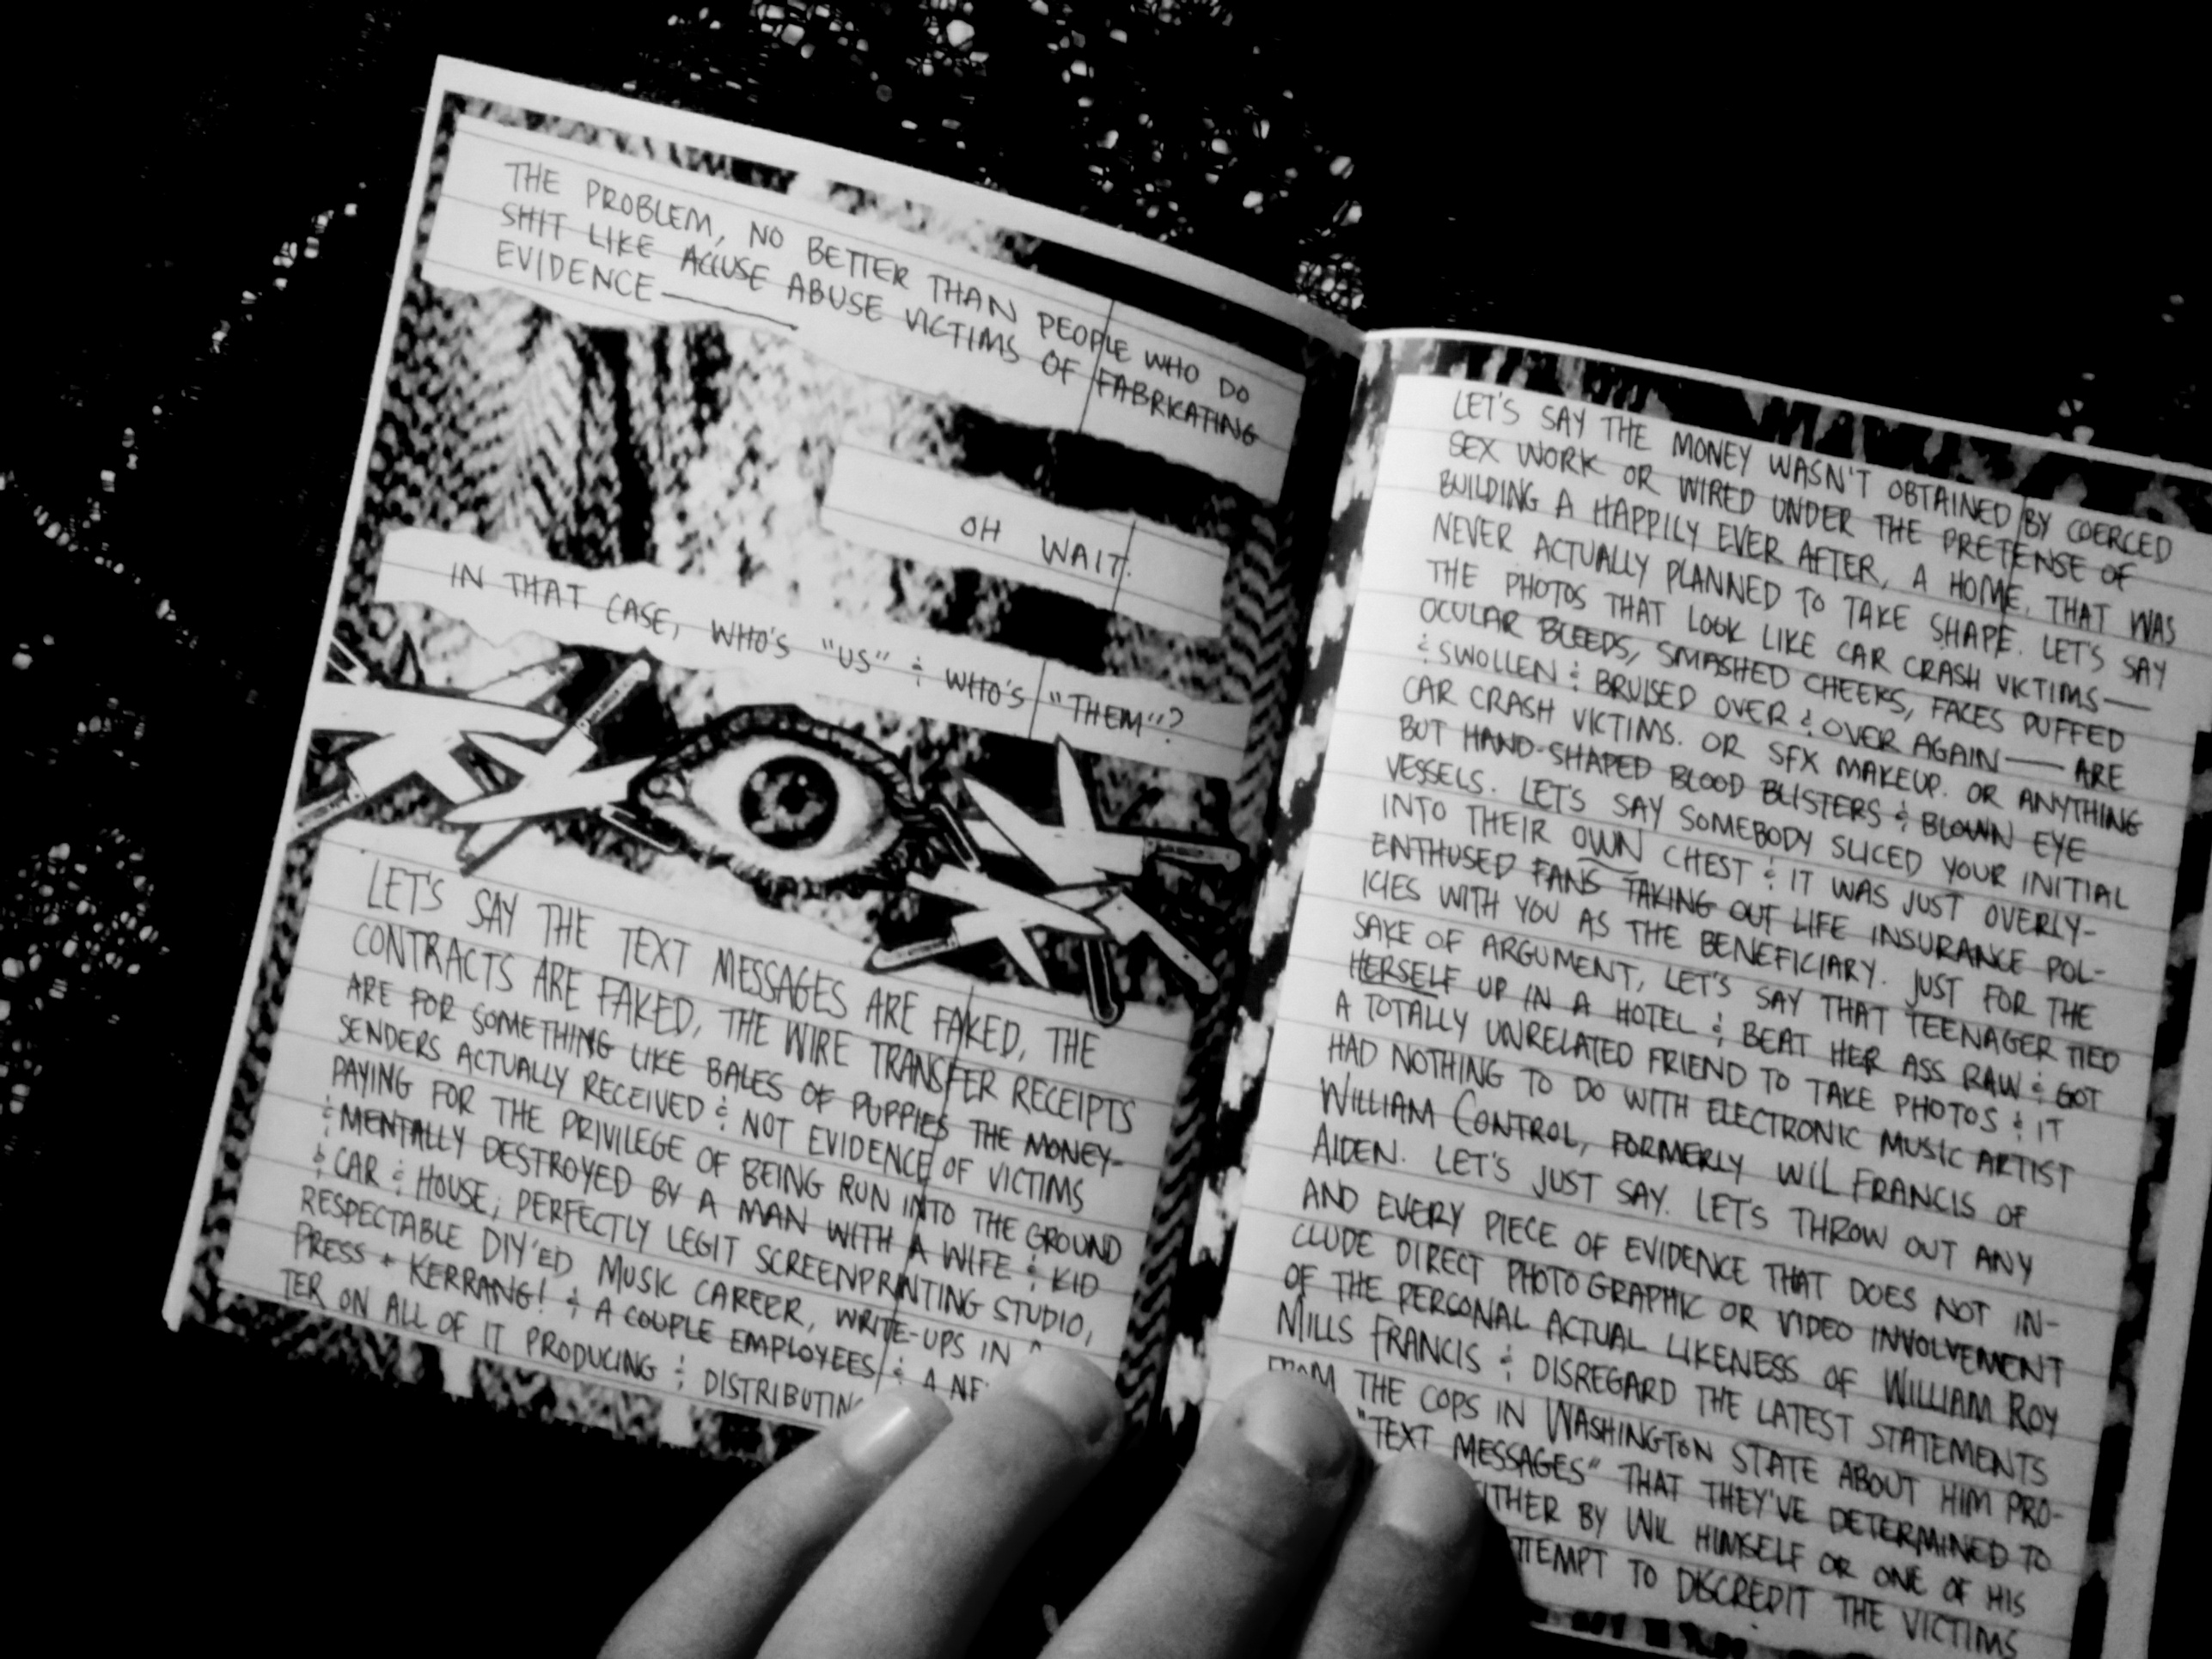 THE PROBLEM, NO BETTER THAN PEOPLE WHO DO
SHIT LIKE ACCUSE ABUSE VICTIMS OF FABRICATING
EVIDENCE——
OH WAIT.
IN THAT CASE, WHO'S "US" & WHO'S "THEM"?
LET'S SAY THE TEXT MESSAGES ARE FAKED, THE
CONTRACTS ARE FAKED, THE WIRE TRANSFER RECEIPTS
ARE FOR SOMETHING LIKE BALES OF PUPPIES THE MONEY-
SENDERS ACTUALLY RECEIVED & NOT EVIDENCE OF VICTIMS
PAYING FOR THE PRIVILEGE OF BEING RUN INTO THE GROUND
& MENTALLY DESTROYED BY A MAN WITH A WIFE & KID
& CAR & HOUSE; PERFECTLY LEGIT SCREENPRINTING STUDIO,
RESPECTABLE DIY'ED MUSIC CAREER, WRITE-UPS IN
PRESS + KERRANG! & A COUPLE EMPLOYEES & A
TER ON ALL OF IT PRODUCING & DISTRIBUTING
LET'S SAY THE MONEY WASN'T OBTAINED BY COERCED
SEX WORK OR WIRED UNDER THE PRETENSE OF
BUILDING A HAPPILY EVER AFTER, A HOME, THAT WAS
NEVER ACTUALLY PLANNED TO TAKE SHAPE. LET'S SAY
THE PHOTOS THAT LOOK LIKE CAR CRASH VICTIMS——
OCULAR BLEEDS, SMASHED CHEEKS, FACES PUFFED
& SWOLLEN & BRUISED OVER & OVER AGAIN—— ARE
CAR CRASH VICTIMS. OR SFX MAKEUP. OR ANYTHING
BUT HAND-SHAPED BLOOD BLISTERS & BLOWN EYE
VESSELS. LET'S SAY SOMEBODY SLICED YOUR INITIAL
INTO THEIR OWN CHEST & IT WAS JUST OVERLY-
ENTHUSED FANS TAKING OUT LIFE INSURANCE POL-
ICIES WITH YOU AS THE BENEFICIARY. JUST FOR THE
SAKE OF ARGUMENT, LET'S SAY THAT TEENAGER TIED
HERSELF UP IN A HOTEL & BEAT HER ASS RAW & GOT
A TOTALLY UNRELATED FRIEND TO TAKE PHOTOS & IT
HAD NOTHING TO DO WITH ELECTRONIC MUSIC ARTIST
WILLIAM CONTROL, FORMERLY WIL FRANCIS OF
AIDEN. LET'S JUST SAY. LET'S THROW OUT ANY
AND EVERY PIECE OF EVIDENCE THAT DOES NOT IN-
CLUDE DIRECT PHOTOGRAPHIC OR VIDEO INVOLVEMENT
OF THE PERSONAL ACTUAL LIKENESS OF WILLIAM ROY
MILLS FRANCIS & DISREGARD THE LATEST STATEMENTS
FROM THE COPS IN WASHINGTON STATE ABOUT HIM PRO-
"TEXT MESSAGES" THAT THEY'VE DETERMINED TO
BY WIL HIMSELF OR ONE OF HIS
TO DISCREDIT THE VICTIMS